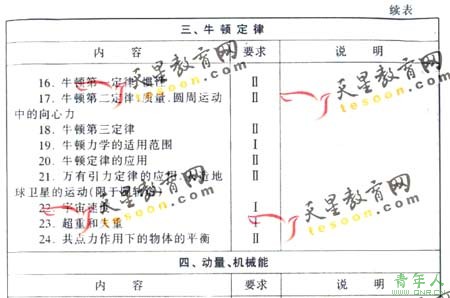 续表
三、牛顿定律
内 容 要求 说 明
16. 牛顿第一定律.惯性 Ⅱ
17. 牛顿第二定律.质量.圆周运动 Ⅱ
中的向心力
18. 牛顿第三定律 Ⅱ
19. 牛顿力学的适用范围 Ⅰ
20. 牛顿定律的应用 Ⅱ
21. 万有引力定律的应用.人造地 Ⅱ
球卫星的运动(限于圆轨道)
22. 宇宙速度 Ⅰ
23. 超重和失重 Ⅰ
24. 共点力作用下的物体的平衡 Ⅱ
四、动量、机械能
内 容 要求 说 明
天星教育网
tesoon.com
天星教育网
tesoon.com
天星教育网
tesoon.com
天星教育网
tesoon.com
青年人